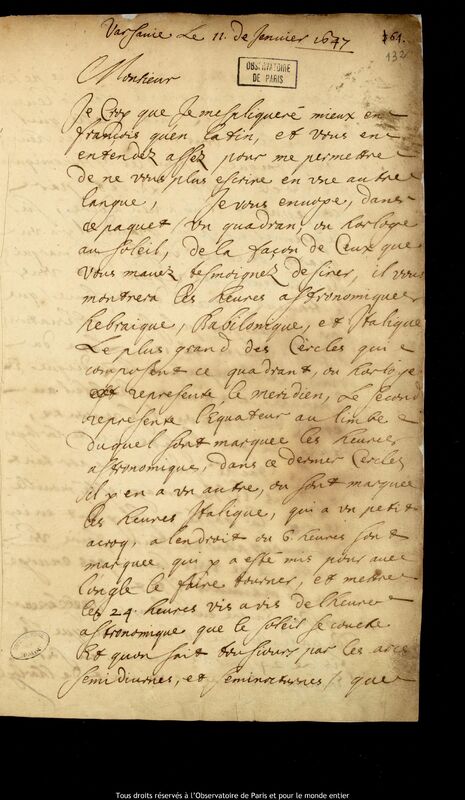 Varsauie Le 11. de Jenuier 1647
361.
132
OBSERVATOIRE
DE PARIS
Monsieur
Je Croy que Je mespliqueré mieux en
francois quen latin, et vous en
entendez assez pour me permettre
de ne vous plus escrire en vne autre
langue, Je vous enuoye, dans
ce paquet vn quadran, ou horloge
au soleil, de la façon de Ceux que
vous mauez tesmoignez desirer, il vous
montrera les heures astronomiques
hebraique, Babilonique, et Italique
Le plus grand des Cercles qui
composent ce quadrant, ou horloge
represente le meridien, Le second
represente lEquateur au limbe
duquel sont marquee les heures
astronomique, dans ce dernier Cercles
il y en a vn autre, ou sont marquee
les heures Italique, qui a vn petit
acroq, a lendroit ou 6 heures sont
marquee qui y a esté mis pour auec
longle le faire tourner, et mettre
les 24 heures vis a vis de lheure
astronomique que le soleil se couche
Et quon sait tousiours par les arcs
semidiurnes, et seminocturnes que
Tous droits réservés à l'Observatoire de Paris et pour le monde entier